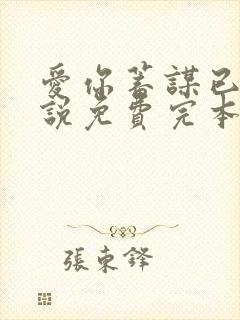 愛你蓄謀已
說免費完本
張東鋒